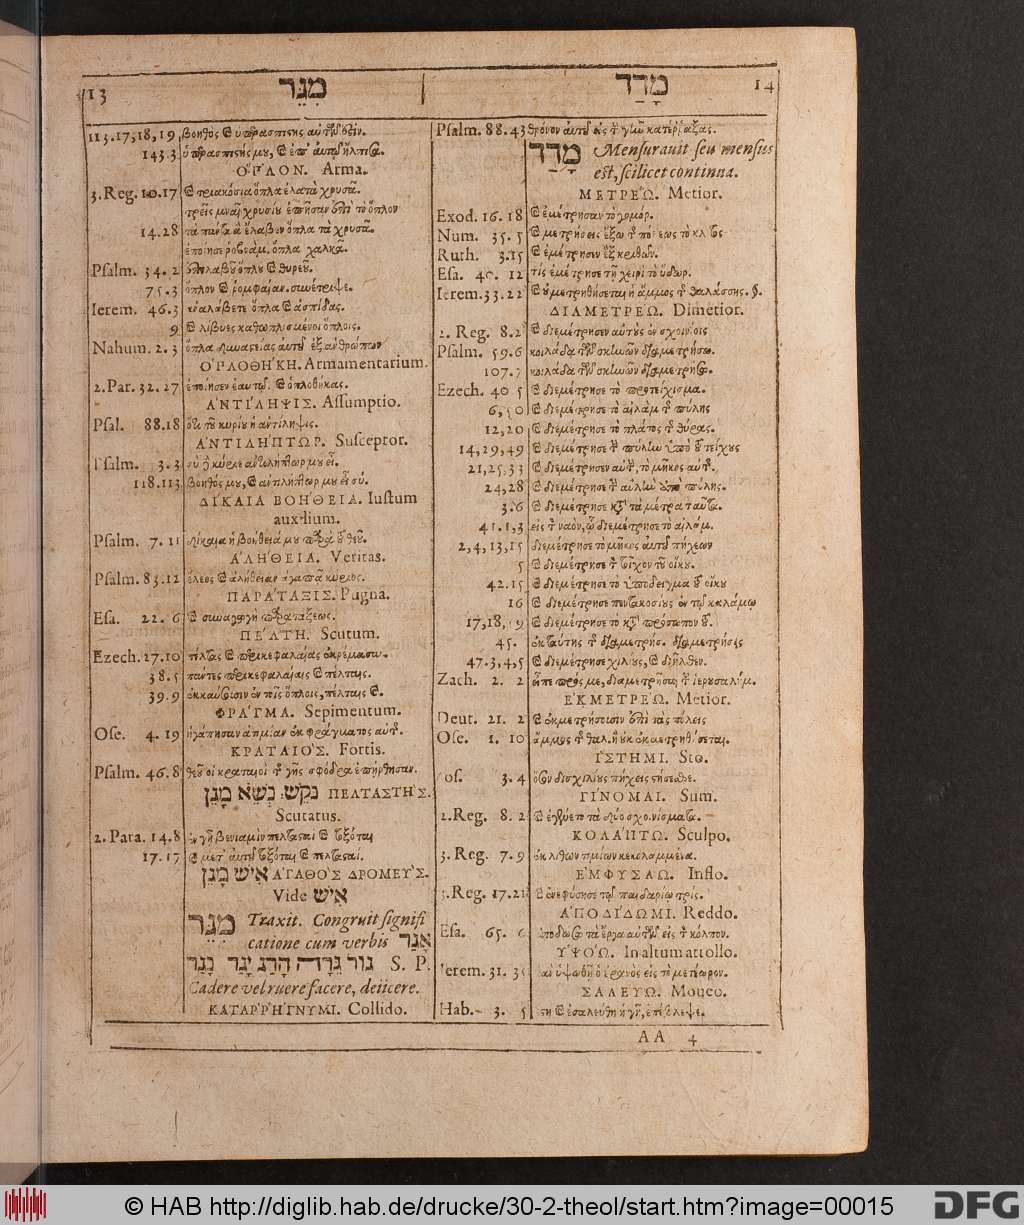 13 מִגֵּר
113.17,18,19, βοηθὸς καὶ ὑπερασπιστὴς αὐτῶν ἐστίν.
143.3 ὑπερασπιστής μου, καὶ ἐπ' αὐτῷ ἤλπισα.
ὍΠΛΟΝ. Arma.
3. Reg. 10.17 καὶ τριακόσια ὅπλα ἐλατὰ χρυσᾶ.
τρεῖς μναῖ χρυσίου ἐπῆσαν ἐπὶ τὸ ὅπλον
14.28 τὰ πάντα ἃ ἔλαβεν ὅπλα τὰ χρυσᾶ.
ἐποίησε ῥοβοὰμ. ὅπλα χαλκᾶ.
Psalm. 34. 2 ἐπιλαβοῦ ὅπλου καὶ θυρεοῦ.
75.3 ὅπλον καὶ ῥομφαίαν. συνέτριψε.
Ierem. 46.3 ἀναλάβετε ὅπλα καὶ ἀσπίδας.
9 καὶ λίβυες καθωπλισμένοι ὅπλοις.
Nahum. 2. 3 ὅπλα δυναστείας αὐτοῦ ἐξ ἀνθρώπων
ὉΠΛΟΘΉΚΗ. Armamentarium.
2. Par. 32. 27 ἐποίησεν ἑαυτῷ. καὶ ὁπλοθήκας.
ἈΝΤΊΛΗΨΙΣ. Assumptio.
Psal. 88.18 ὅτι τοῦ κυρίου ἡ ἀντίληψις.
ἈΝΤΙΛΉΠΤΩΡ. Susceptor.
Psalm. 3. 3 σὺ δὲ κύριε ἀντιλήπτωρ μου εἶ.
118.113, βοηθός μου, καὶ ἀντιλήπτωρ μου εἶ σύ.
ΔΙΚΑΊΑ ΒΟΉΘΕΙΑ. Iustum
auxilium.
Psalm. 7. 11 δικαία ἡ βοήθειά μου παρὰ τοῦ θεοῦ.
ἈΛΉΘΕΙΑ. Veritas.
Psalm. 83.12 ἔλεος καὶ ἀλήθειαν ἀγαπᾷ κύριος.
ΠΑΡΆΤΑΞΙΣ. Pugna.
Esa. 22. 6 καὶ συναγωγὴ παρατάξεως.
ΠΈΛΤΗ. Scutum.
Ezech. 27.10 πέλτας καὶ περικεφαλαίας ἐκρέμασαν.
38.5 πάντες περικεφαλαίαις καὶ πέλταις.
39.9 ἐκκαύσουσιν ἐν τοῖς ὅπλοις, πέλταις καὶ.
ΦΡΆΓΜΑ. Sepimentum.
Ose. 4. 19 ἠγάπησαν ἀτιμίαν ἐκ φράγματος αὐτῆς.
ΚΡΑΤΑΙΌΣ. Fortis.
Psalm. 46.8 θεοῦ οἱ κραταιοὶ τῆς γῆς σφόδρα ἐπήρθησαν.
נֹקֵשׁ: נֹשֵׂא מָגֵן ΠΕΛΤΑΣΤΉΣ.
Scutatus.
2. Para. 14.8 ἐν γῇ βενιαμὶν πελτασταὶ καὶ τοξόται
17.17 καὶ μετ' αὐτοῦ τοξόται καὶ πελτασταί.
אִישׁ מָגֵן ἈΓΑΘῸΣ ΔΡΟΜΕΎΣ.
Vide אִישׁ
מִגֵּר Traxit. Congruit signifi
catione cum verbis אָגַר
גּוּר גָּרָה הָרַג יָגַר נָגַר S. P.
Cadere vel ruere facere, deiicere.
ΚΑΤΑῤῬΉΓΝΥΜΙ. Collido.
מָדַד 14
Psalm. 88. 43 θρόνον αὐτοῦ εἰς τὴν γῆν κατέῤῥαξας.
מָדַד Mensurauit seu mensus
est, scilicet continua.
ΜΕΤΡΈΩ. Metior.
Exod. 16. 18 καὶ ἐμέτρησαν τὸ γομόρ.
Num. 35. 5 καὶ μετρήσεις ἔξω τῆς πόλεως τὸ κλίτος
Ruth. 3.15 καὶ ἐμέτρησεν ἓξ κριθῶν.
Esa. 40. 12 τίς ἐμέτρησε τῇ χειρὶ τὸ ὕδωρ.
Ierem. 33. 22 καὶ οὐ μετρηθήσεται ἡ ἄμμος τῆς θαλάσσης.
ΔΙΑΜΕΤΡΈΩ. Dimetior.
2. Reg. 8. 2 καὶ διεμέτρησεν αὐτοὺς ἐν σχοινίοις
Psalm. 59.6 κοιλάδα τῶν σκηνῶν διαμετρήσω.
107.7 κοιλάδα τῶν σκηνῶν διαμετρήσω.
Ezech. 40 5 καὶ διεμέτρησε τὸ προτείχισμα.
6, 10 καὶ διεμέτρησε τὸ αἰλὰμ τῆς πύλης
12,20 καὶ διεμέτρησε τὸ πλάτος τῆς θύρας.
14,29,49 καὶ διεμέτρησε τὴν πύλην ὑπὸ τοῦ τείχους
21,25,33 καὶ διεμέτρησεν αὐτὴν, τὸ μῆκος αὐτῆς.
24,28 καὶ διεμέτρησε τὴν αὐλὴν ὑπὸ πύλης.
3.6 καὶ διεμέτρησε κατὰ τὰ μέτρα ταῦτα.
41.1,3 εἰς τὸν ναὸν, ᾧ διεμέτρησε τὸ αἰλάμ.
2,4,13,15 διεμέτρησε τὸ μῆκος αὐτοῦ πήχεων
5 καὶ διεμέτρησε τὸν τοῖχον τοῦ οἴκου.
42.15 καὶ διεμέτρησε τὸ ὑπόδειγμα τοῦ οἴκου
16 καὶ διεμέτρησε πεντακοσίους ἐν τῷ καλάμῳ
17,18,19 καὶ διεμέτρησε τὸ κατὰ πρόσωπον τοῦ.
45. ἐκ ταύτης τῆς διαμετρήσ. διαμετρήσεις
47.3,4,5 καὶ διεμέτρησε χιλίους, καὶ διῆλθεν.
Zach. 2. 2 εἶπε πρός με, διαμετρῆσαι τὴν ἱερουσαλήμ.
ἘΚΜΕΤΡΈΩ. Metior.
Deut. 21. 2 καὶ ἐκμετρήσουσιν ἐπὶ τὰς πόλεις
Ose. 1. 10 ἄμμος τῆς θαλ. ἣ οὐκ ἐκμετρηθήσεται.
ἽΣΤΗΜΙ. Sto.
Ios. 3. 4 ὅσον δισχιλίους πήχεις στήσεσθε.
ΓΊΝΟΜΑΙ. Sum.
2. Reg. 8. 2 καὶ ἐγένετο τὰ δύο σχοινίσματα.
ΚΟΛΆΠΤΩ. Sculpo.
3. Reg. 7. 9 ἐκ λίθων τιμίων κεκολαμμένα.
ἘΜΦΥΣΆΩ. Inflo.
3. Reg. 17. 21 καὶ ἐνεφύσησε τῷ παιδαρίῳ τρίς.
ἈΠΟΔΊΔΩΜΙ. Reddo.
Esa. 65. 6 ἀποδώσω τὰ ἔργα αὐτῶν εἰς τὸν κόλπον.
ὙΨΌΩ. In altum attollo.
Ierem. 31. 35 ἐὰν ὑψωθῇ ὁ οὐρανὸς εἰς τὸ μετέωρον.
ΣΑΛΕΎΩ. Moueo.
Hab. 3. 5 ἔστη καὶ ἐσαλεύθη ἡ γῆ, ἐπέβλεψε.
AA 4
© HAB http://diglib.hab.de/drucke/30-2-theol/start.htm?image=00015
DFG